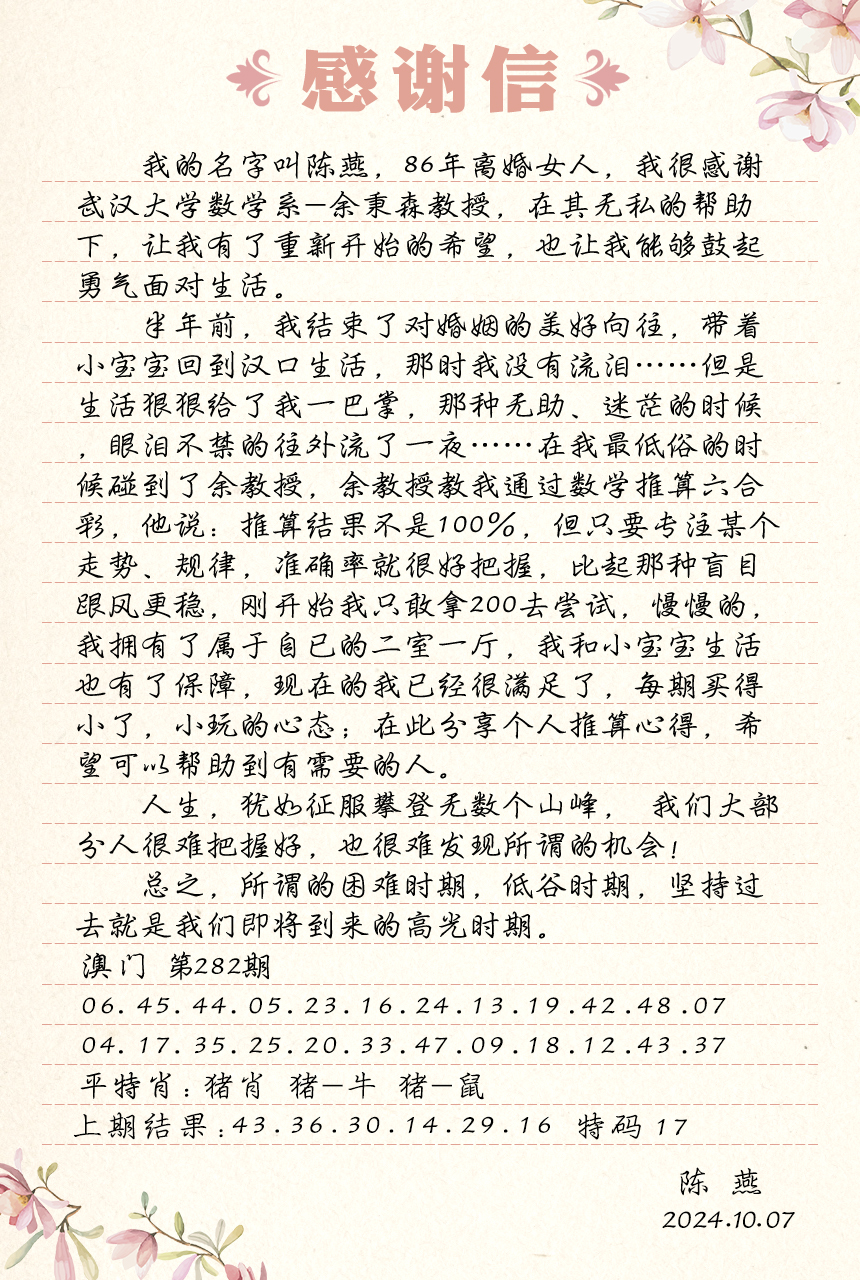 感谢信
我的名字叫陈燕，86年离婚女人，我很感谢
武汉大学数学系—余秉森教授，在其无私的帮助
下，让我有了重新开始的希望，也让我能够鼓起
勇气面对生活。
半年前，我结束了对婚姻的美好向往，带着
小宝宝回到汉口生活，那时我没有流泪……但是
生活狠狠给了我一巴掌，那种无助、迷茫的时候
，眼泪不禁的往外流了一夜……在我最低俗的时
候碰到了余教授，余教授教我通过数学推算六合
彩，他说：推算结果不是100%，但只要专注某个
走势、规律，准确率就很好把握，比起那种盲目
跟风更稳，刚开始我只敢拿200去尝试，慢慢的，
我拥有了属于自已的二室一厅，我和小宝宝生活
也有了保障，现在的我已经很满足了，每期买得
小了，小玩的心态；在此分享个人推算心得，希
望可以帮助到有需要的人。
人生，犹如征服攀登无数个山峰， 我们大部
分人很难把握好，也很难发现所谓的机会！
总之，所谓的困难时期，低谷时期，坚持过
去就是我们即将到来的高光时期。
澳门 第282期
06.45.44.05.23.16.24.13.19.42.48.07
04.17.35.25.20.33.47.09.18.12.43.37
平特肖：猪肖 猪—牛 猪—鼠
上期结果：43.36.30.14.29.16 特码 17
陈 燕
2024.10.07